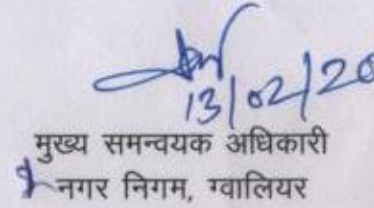 13/02/20
मुख्य समन्वयक अधिकारी
नगर निगम, ग्वालियर